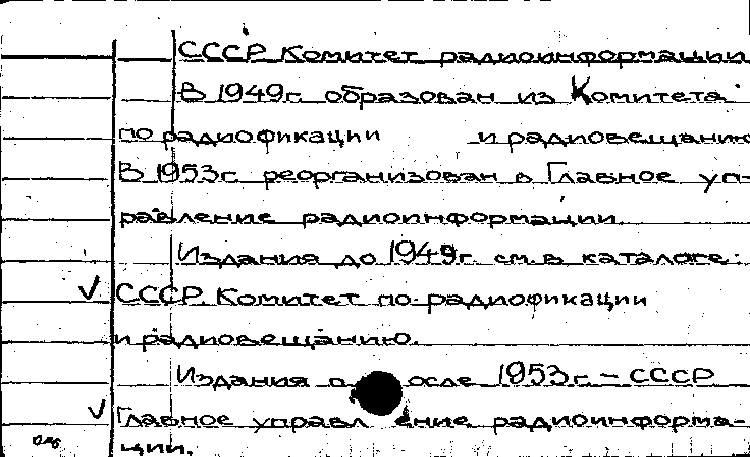 СССР Комитет радиоинформации
В 1949г. образован из Комитета
по радиофикации и радиовещанию
В 1953г. реорганизован в Главное уп-
равление радиоинформации.
Издания до 1949г. см. в каталоге:
√ СССР. Комитет по радиофикации
и радиовещанию.
Издания после 1953г. – СССР
√ Главное управление радиоинформа-
ции.